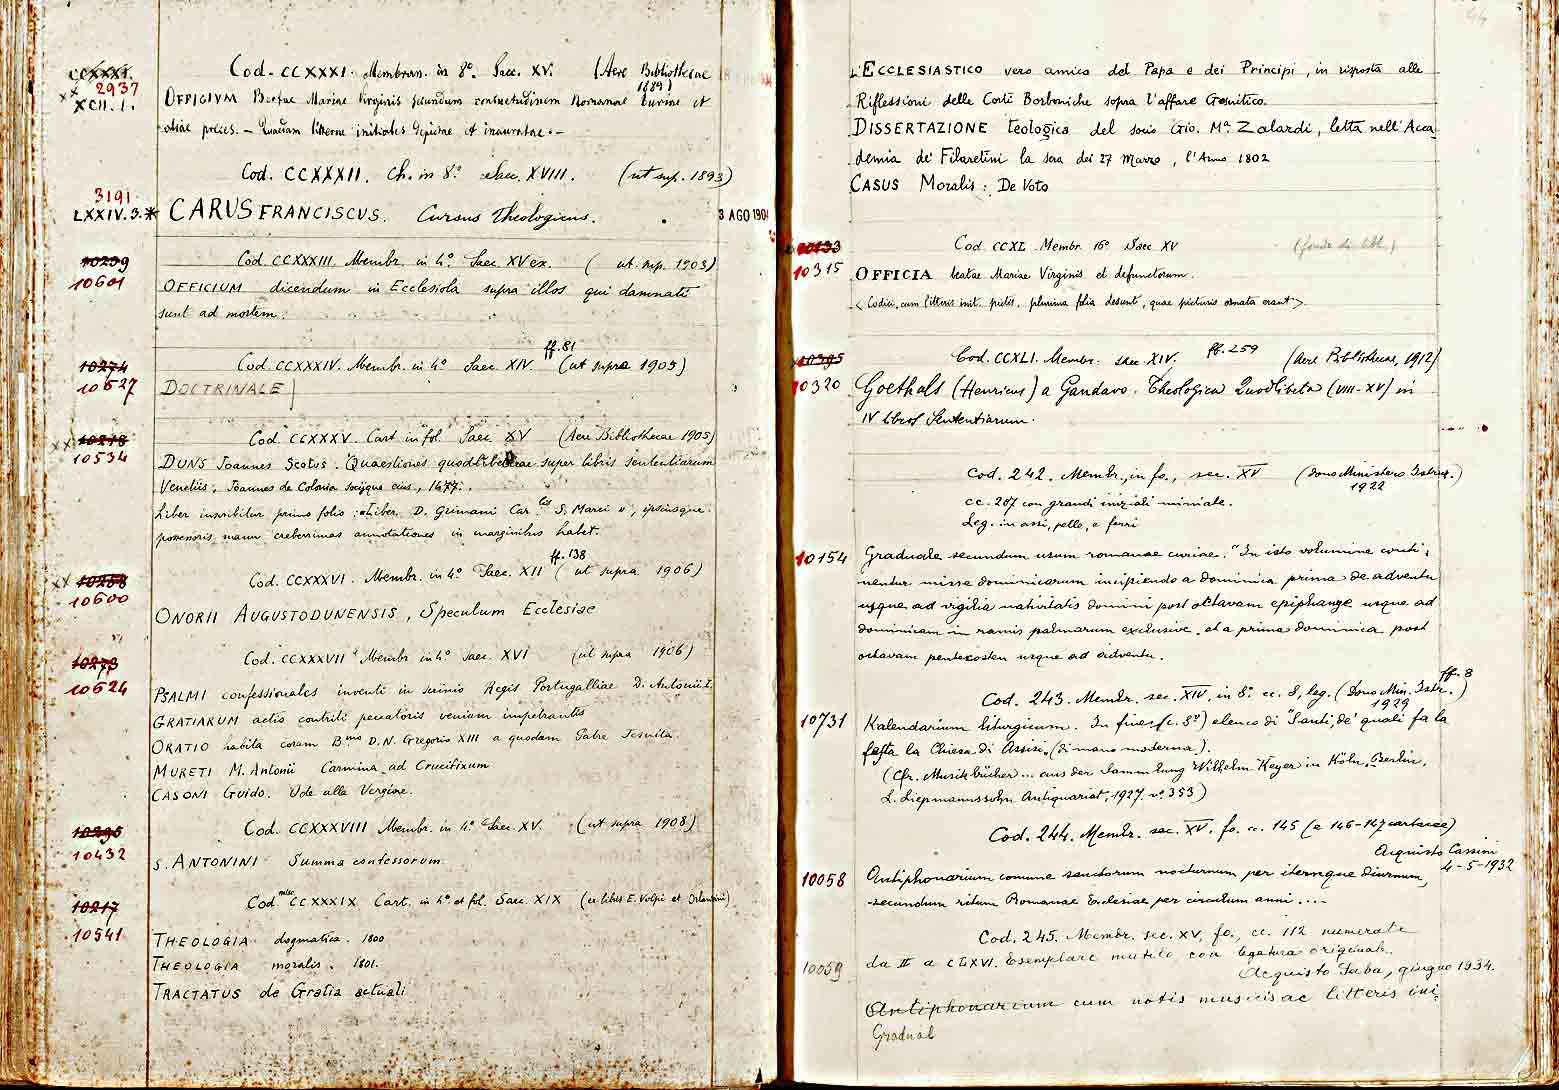 CCXXXI.
2937
XCII. I.
Cod. CCXXXI. Membran. in 8º. Saec. XV. (Aere Bibliothecae 1889)
OFFICIVM Beatae Mariae Virginis secundum consuetudinem Romanae Curiae et
aliae preces. — Quaedam litterae initiales depictae et inauratae. —
Cod. CCXXXII. Ch. in 8º. Saec. XVIII. (ut sup. 1893)
3191
LXXIV. 3. *
CARUS FRANCISCUS. Cursus Theologicus.
3 AGO 190
10239
10601
Cod. CCXXXIII. Membr. in 4º. Saec. XV ex. ( ut. sup. 1903)
OFFICIUM dicendum in Ecclesiola supra illos qui damnati
sunt ad mortem.
10274
10627
Cod. CCXXXIV. Membr. in 4º Saec. XIV. ff. 81 (ut supra 1905)
DOCTRINALE
10218
10534
Cod. CCXXXV. Cart in fol. Saec. XV (Aere Bibliothecae 1905)
DUNS Joannes Scotus. Quaestiones quodlibetae super libris sententiarum
Venetiis, Joannes de Colonia socijque eius, 1477.
Liber inscribitur primo folio: "Liber D. Grimani Car.lis S. Marci", ipsiusque
possessoris manu creberrimas annotationes in marginibus habet.
10258
10600
Cod. CCXXXVI. Membr. in 4º Saec. XII ff. 138 ( ut supra 1906)
ONORII AUGUSTODUNENSIS, Speculum Ecclesiae
10273
10624
Cod. CCXXXVII Membr in 4º Saec. XVI (ut supra 1906)
PSALMI confessionales inventi in scrinio Regis Portugalliae D. Antonii I.
GRATIARUM actio contriti peccatoris veniam impetrantis
ORATIO habita coram B.mo D.N. Gregorio XIII a quodam Patre Jesuita.
MURETI M. Antonii Carmina ad Crucifixum
CASONI Guido. Ode alla Vergine.
10295
10432
Cod. CCXXXVIII Membr. in 4º Saec. XV. (ut supra 1908)
S. ANTONINI Summa confessorum
10217
10541
Cod. misc CCXXXIX Cart. in 4º et fol. Saec. XIX (ex libris E. Volpi et Orlandini)
THEOLOGIA dogmatica. 1800
THEOLOGIA moralis. 1801.
TRACTATUS de Gratia actuali
44
L'ECCLESIASTICO vero amico del Papa e dei Principi, in risposta alle
Riflessioni delle Corti Borboniche sopra l'affare Gesuitico.
DISSERTAZIONE teologica del socio Gio. Mª Zalardi, letta nell'Acca-
demia de' Filaretini la sera dei 27 Marzo, l'Anno 1802
CASUS Moralis: De Voto
10133
10315
Cod. CCXL. Membr. 16º Saec XV (fondo di bibl.)
OFFICIA beatae Mariae Virginis et defunctorum.
< Codici, cum litteris init. pictis, plurima folia desunt, quae picturis ornata erant >
10395
10320
Cod. CCXLI. Membr. saec XIV. ff. 259 (Aere Bibliothecae, 1912)
Goethals (Henricus) a Gandavo. Theologica Quodlibeta (VIII-XV) in
IV libros Sententiarum.
Cod. 242. Membr., in fo., sec. XV (dono Ministero Istruz.)
1922
cc. 207 con grandi iniziali miniate.
Leg. in assi, pelle, e ferri
10154
Graduale secundum usum romanae curiae. "In isto volumine conti-
nentur misse dominicarum incipiendo a dominica prima de adventu
usque ad vigilia nativitatis domini post octavam epiphanye usque ad
dominicam in ramis palmarum exclusive, et a prima dominica post
octavam pentecosten usque ad adventu.
Cod. 243. Membr. sec. XIV, in 8º. cc. 8, leg. (Dono Min. Istr.) ff. 8
1929
10731
Kalendarium liturgicum. In fine (c. 8v) elenco di "Santi de' quali fa la
festa la Chiesa di Assisi. (di mano moderna).
(Cfr. Musikbücher... aus der Sammlung Wilhelm Heyer in Köln, Berlin,
L. Liepmannssohn Antiquariat, 1927. nº 353)
Cod. 244. Membr. sec. XV, fo. cc. 145 (e 146-147 cartacee)
Acquisto Cassini
4-5-1932
10058
Antiphonarium comune sanctorum nocturnum per iterque diurnum,
secundum ritum Romanae Ecclesiae per circulum anni....
Cod. 245. Membr. sec. XV, fo., cc. 112 numerate
10059
da II a CLXVI. Esemplare mutilo con legatura originale.
Acquisto Saba, giugno 1934.
Antiphonarium cum notis musicis ac litteris ini-
Gradual